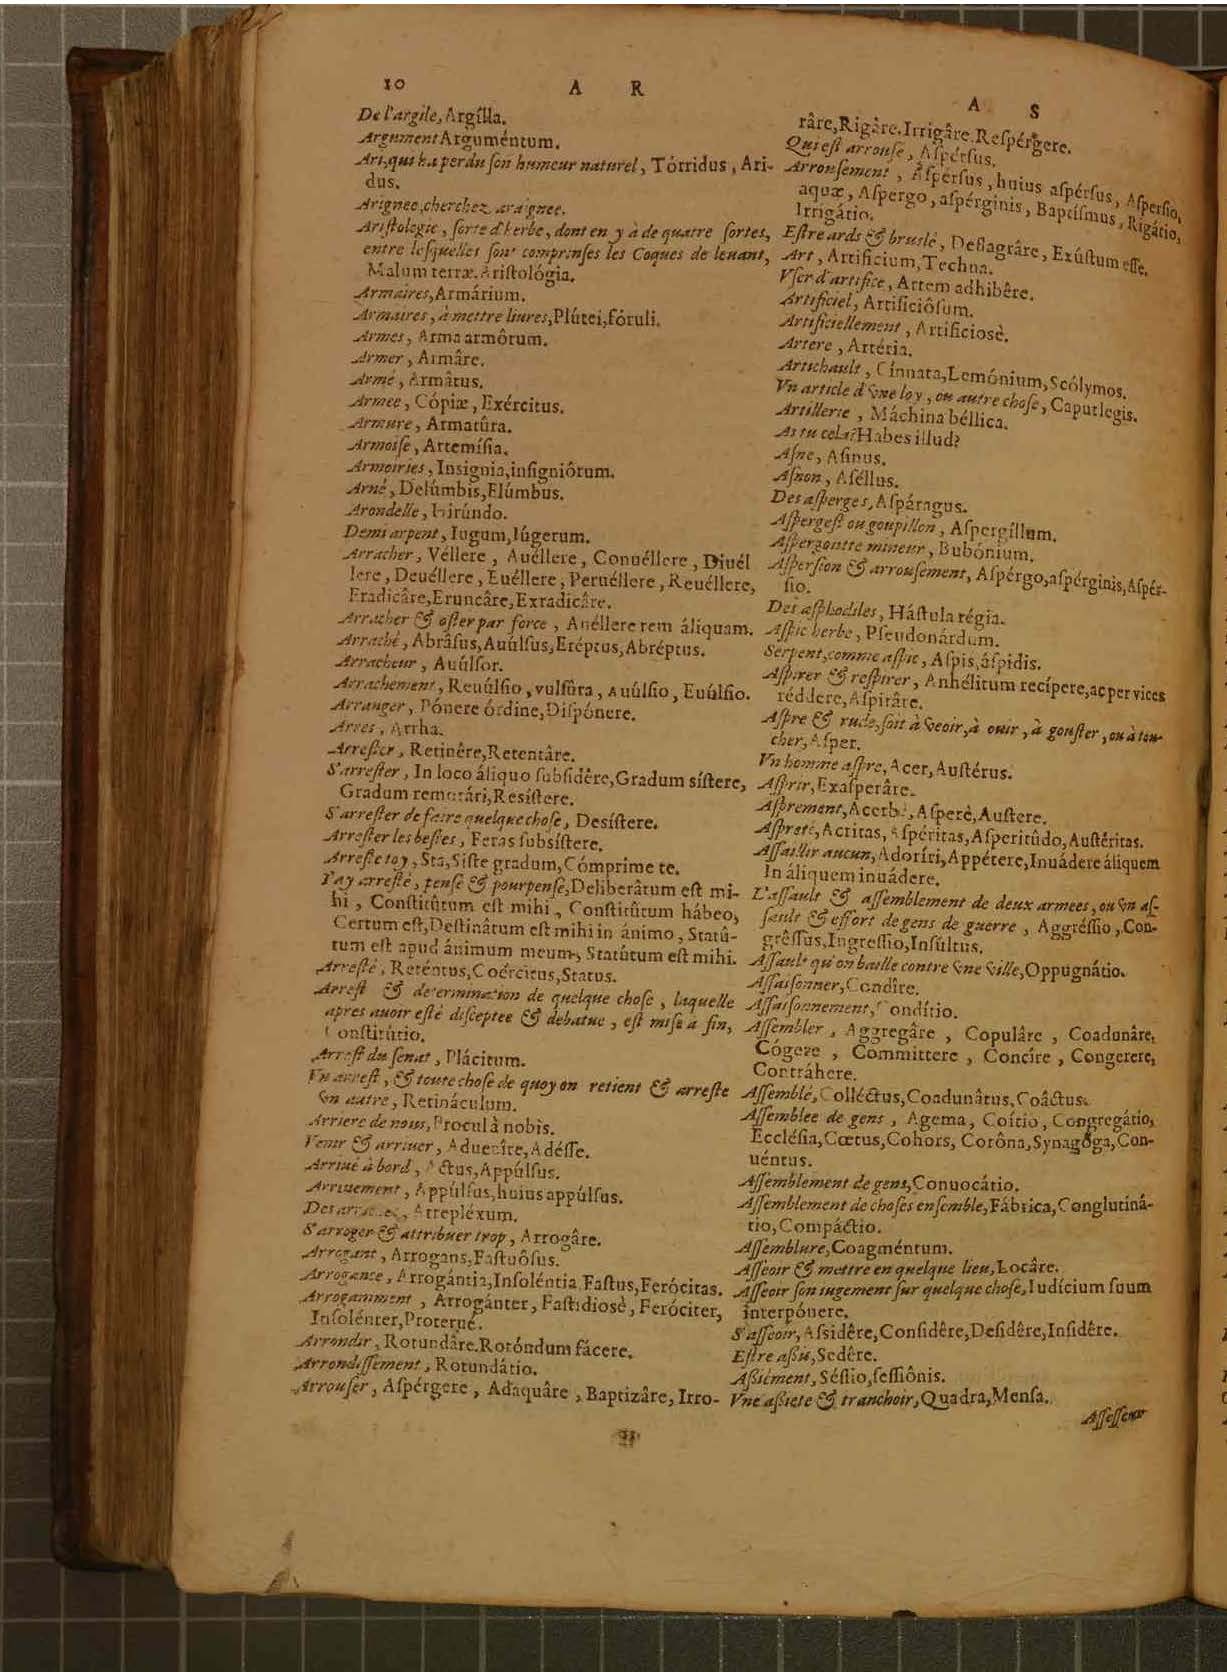 10 A R
De l'argile, Argílla.
Argument Arguméntum.
Ari, qui ha perdu ſon humeur naturel, Tórridus, Ari-
dus.
Arignee, cherchez araignee.
Ariſtologie, ſorte d'herbe, dont en y à de quatre ſortes,
entre leſquelles ſont comprinſes les Coques de leuant,
Malum terræ. Ariſtológia.
Armaires, Armárium.
Armaires, à mettre liures, Plútei, fóruli.
Armes, Arma armôrum.
Armer, Armâre.
Armé, Armâtus.
Armee, Cópiæ, Exércitus.
Armure, Armatûra.
Armoiſe, Artemíſia.
Armoiries, Inſignia, inſigniôrum.
Arné, Delúmbis, Elúmbus.
Arondelle, Hirúndo.
Demi arpent, Iugum, Iúgerum.
Arracher, Véllere, Auéllere, Conuéllere, Diuél
lere, Deuéllere, Euéllere, Peruéllere, Reuéllere,
Eradicâre, Eruncâre, Extradicâre.
Arracher & oſter par force, Auéllere rem áliquam.
Arraché, Abrâſus, Auúlſus, Eréptus, Abréptus.
Arracheur, Auúlſor.
Arrachement, Reuúlſio, vulſûra, Auúlſio, Euúlſio.
Arranger, Pónere órdine, Diſpónere.
Arres, Arrha.
Arreſter, Retinêre, Retentâre.
S'arreſter, In loco áliquo ſubſidêre, Gradum síſtere,
Gradum remorári, Resíſtere.
S'arreſter de faire quelque choſe, Desíſtere.
Arreſter les beſtes, Feras ſubsíſtere.
Arreſte toy, Sta, Siſte gradum, Cómprime te.
I'ay arreſté, penſé & pourpenſé, Deliberâtum eſt mi-
hi, Conſtitûtum eſt mihi, Conſtitûtum hábeo,
Certum eſt, Deſtinâtum eſt mihi in ánimo, Statû-
tum eſt apud ánimum meum, Statûtum eſt mihi.
Arreſté, Reténtus, Coércitus, Status.
Arreſt & determination de quelque choſe, laquelle
apres auoir eſté diſceptee & debatue, eſt miſe a fin,
Conſtitûtio.
Arreſt du ſenat, Plácitum.
Vn arreſt, & toute choſe de quoy on retient & arreſte
vn autre, Retináculum.
Arriere de nous, Procul à nobis.
Venir & arriuer, Aduenîre, Adéſſe.
Arriué à bord, Actus, Appúlſus.
Arriuement, Appúlſus, huius appúlſus.
Des arraches, Atrepléxum.
S'arroger & attribuer trop, Arrogâre.
Arrogant, Arrogans, Faſtuôſus.
Arrogance, Arrogántia, Inſoléntia Faſtus, Ferócitas.
Arrogamment, Arrogánter, Faſtidiosè, Feróciter,
Inſolénter, Proteruè.
Arrondir, Rotundâre. Rotúndum fácere.
Arrondiſſement, Rotundátio.
Arrouſer, Aſpérgere, Adaquâre, Baptizâre, Irro-
A S
râre, Rigâre. Irrigâre. Reſpérgere.
Qui eſt arrouſe, Aſpérſus.
Arrouſement, Aſpérſus, huius aſpérſus, Aſperſio,
aquæ, Aſpergo, aſpérginis, Baptíſmus, Rigátio,
Irrigátio.
Eſtre ards & bruslé, Deflagrâre, Exúſtum eſſe.
Art, Artificium, Techna.
Vſer d'artifice, Artem adhibêre.
Artificiel, Artificiôſum.
Artificiellement, Artificiosè.
Artere, Artéria.
Artichault, Cínnata, Lemónium, Scólymos.
Vn article d'vne loy, ou autre choſe, Caput legis.
Artillerie, Máchina béllica.
As tu cela? Habes illud?
Aſne, Aſinus.
Aſnon, Aſéllus.
Des aſperges, Aſpáragus.
Aſpergeſt ou goupillon, Aſpergíllum.
Aſpergoutte mineur, Bubónium.
Aſperſion & arrouſement, Aſpérgo, aſpérginis, Aſpér-
ſio.
Des aſphodiles, Háſtula régia.
Aſpic herbe, Pſeudonárdum.
Serpent, comme aſpic, Aſpis, áſpidis.
Aſpirer & reſpirer, Anhélitum recípere, ac per vices
réddere, Aſpirâre.
Aſpre & rude, ſoit à veoir, à ouir, à gouſter, ou à tou-
cher, Aſper.
Vn homme aſpre, Acer, Auſtérus.
Aſprir, Exaſperâre.
Aſprement, Acerbè, Aſperè, Auſtere.
Aſpreté, Acritas, Aſpéritas, Aſperitûdo, Auſtéritas.
Aſſaillir aucun, Adoríri, Appétere, Inuádere áliquem
In áliquem inuádere.
L'aſſault & aſſemblement de deux armees, ou vn aſ-
ſault & effort de gens de guerre, Aggréſſio, Con-
grêſſus, Ingreſſio, Inſúltus.
Aſſault qu'on baille contre vne ville, Oppugnátio.
Aſſaiſonner, Condîre.
Aſſaiſonnement, Condítio.
Aſſembler, Aggregâre, Copulâre, Coadunâre,
Cógere, Committere, Concíre, Congerere,
Contráhere.
Aſſemblé, Colléctus, Coadunâtus, Coâctus.
Aſſemblee de gens, Agema, Coítio, Congregátio,
Eccléſia, Cœtus, Cohors, Corôna, Synagóga, Con-
uéntus.
Aſſemblement de gens, Conuocâtio.
Aſſemblement de choſes enſemble, Fábrica, Conglutinâ-
tio, Compáctio.
Aſſemblure, Coagméntum.
Aſſeoir & mettre en quelque lieu, Locâre.
Aſſeoir ſon iugement ſur quelque choſe, Iudícium ſuum
interpónere.
S'aſſeoir, Aſsidêre, Conſidêre, Deſidêre, Inſidêre.
Eſtre aſsis, Sedêre.
Aſsiément, Séſſio, ſeſſiônis.
Vne aſsiete & tranchoir, Quadra, Menſa.
Aſſeſſeur